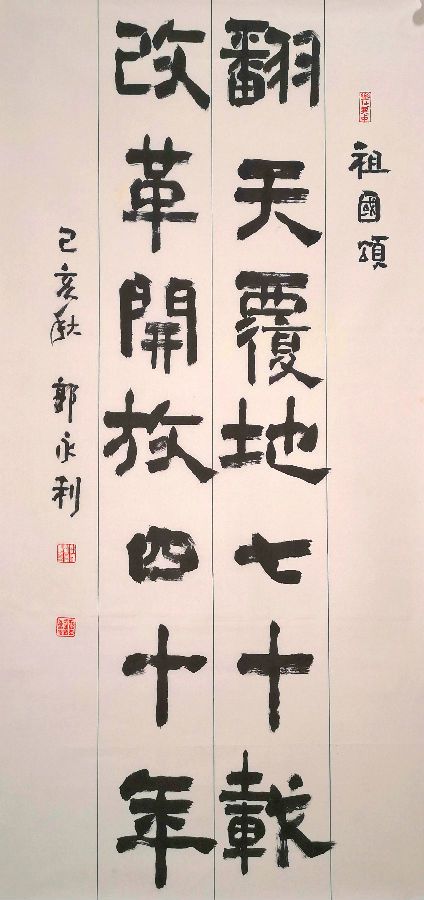 祖國頌
翻天覆地七十載
改革開放四十年
己亥秋 郭永利